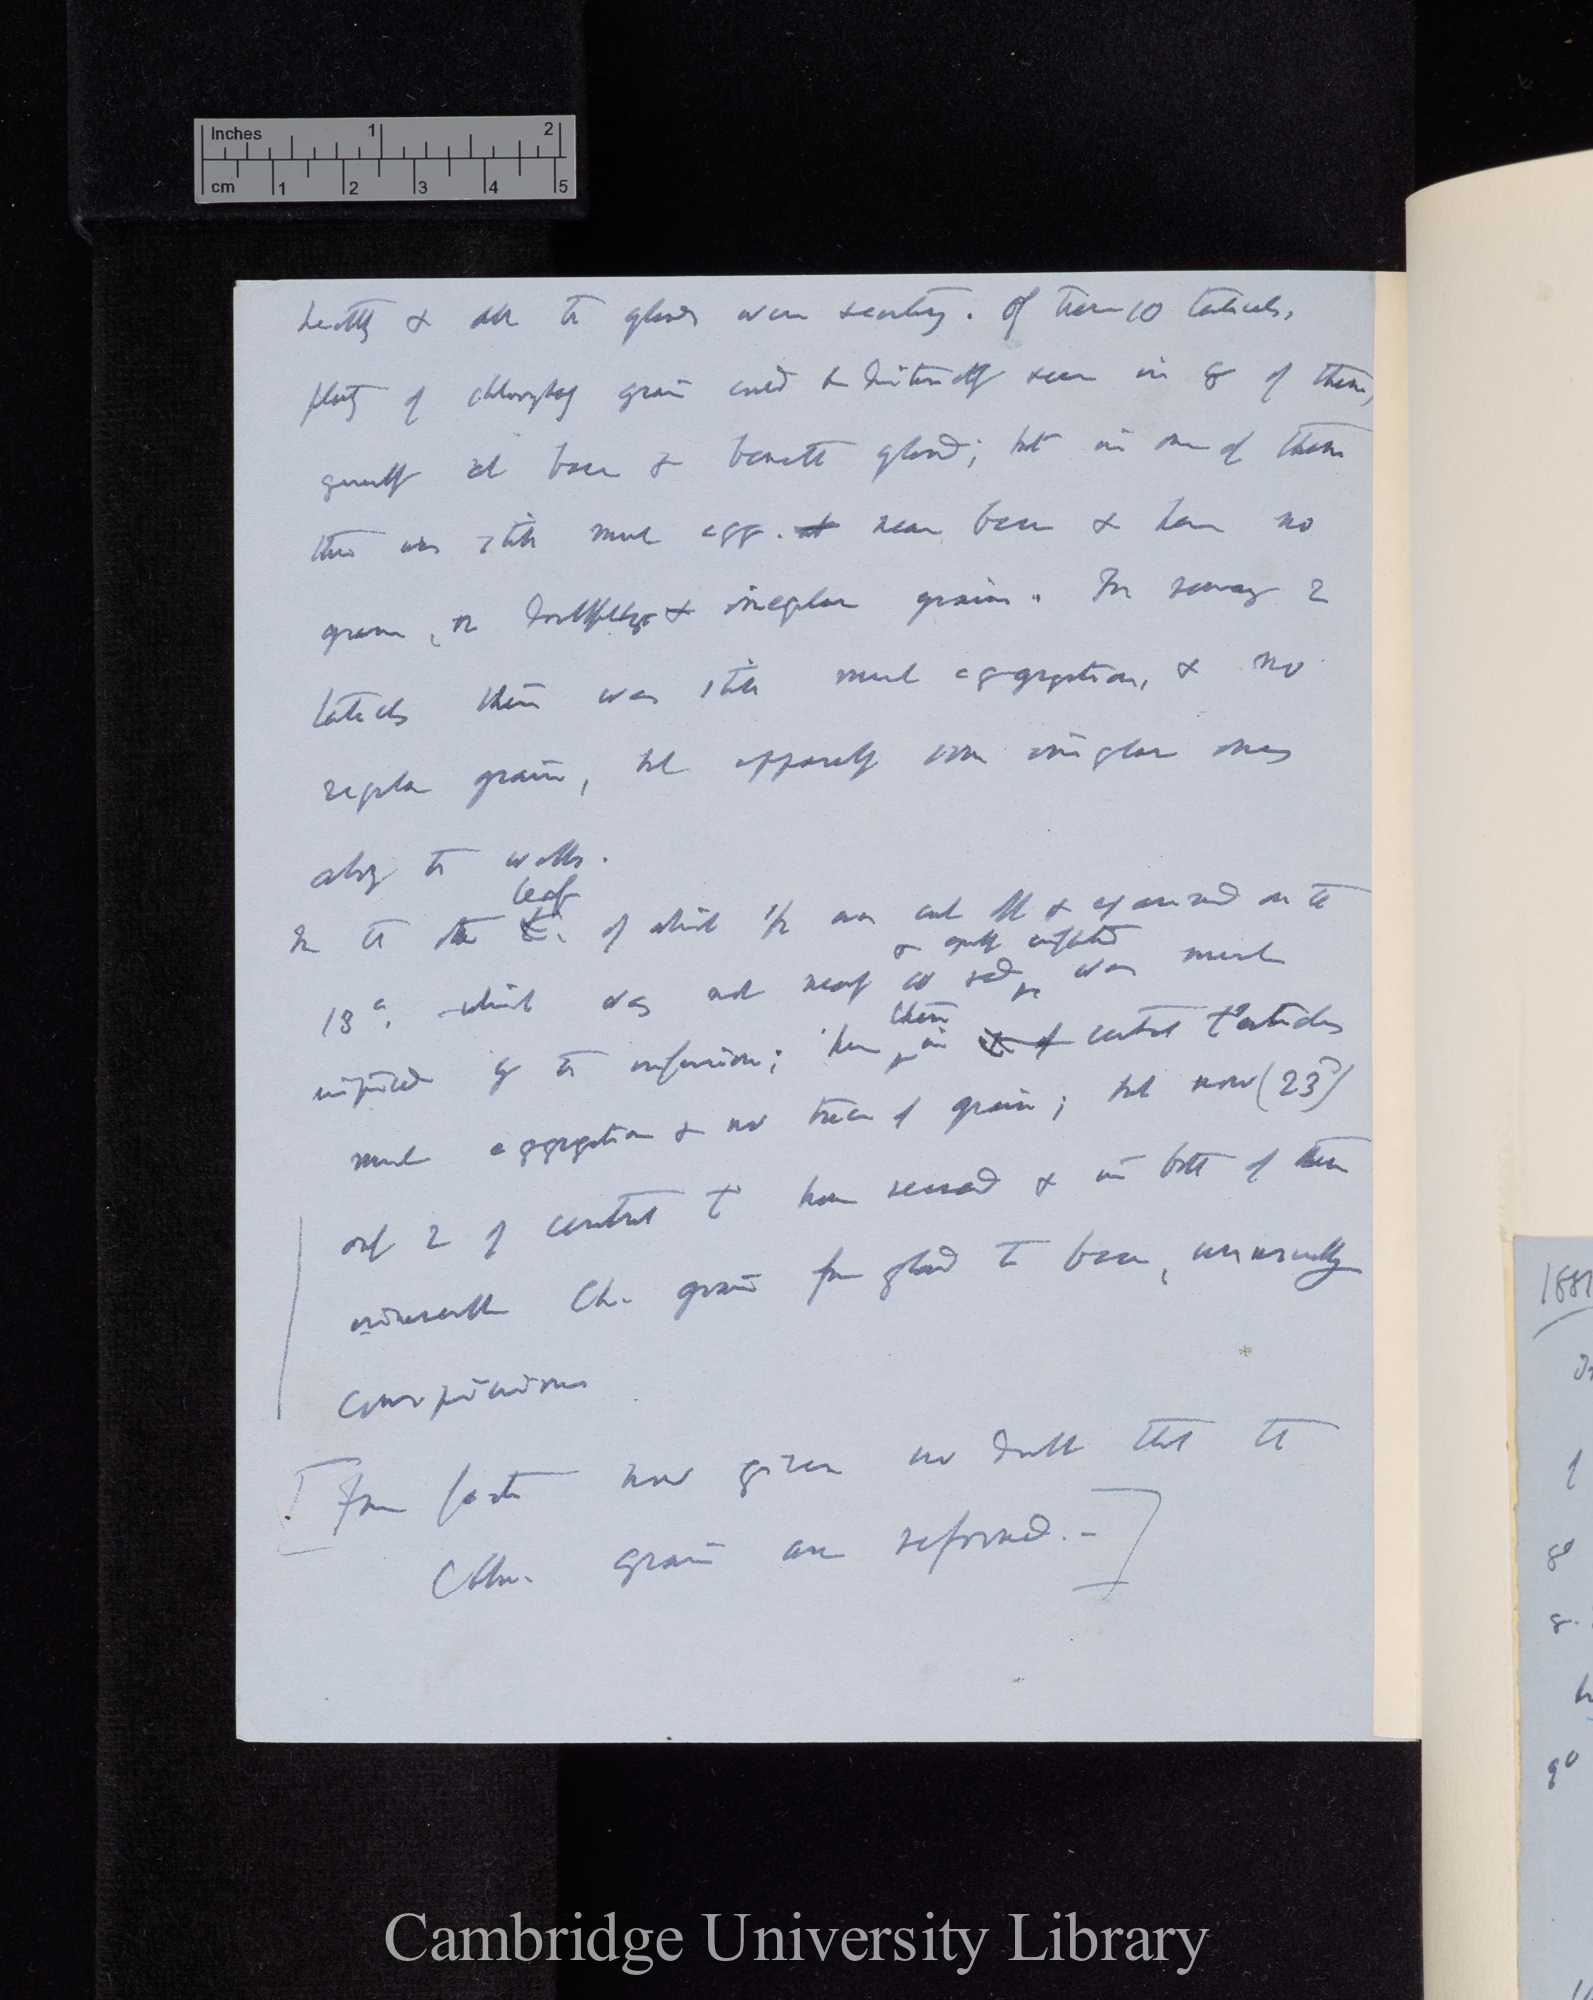 Inches 1 2
cm 1 2 3 4 5
healthy & all the glands were secreting. Of these 10 tentacles,
plenty of chlorophyll grains could be distinctly seen in 8 of them,
generally at base & beneath gland; but in one of them
there was still much agg. at near base & here no
grains, or doubtful & irregular grains. In remaining 2
tentacles there was still much aggregation, & no
regular grains, but apparently some irregular ones
along the walls.
leaf
In the other of which 1/2 was cut off & examined on the
& only
18th, which was not nearly so red, was much
there
by the infusion; then in of central Tentacles
much aggregation & no trace of grains; but now (23d)
only 2 of central T have & in both of these
Ch. grains from gland to base, unusually
conspicuous
[From facts now given no doubt that the
Chlo. grains are reformed.—]
1881
Cambridge University Library